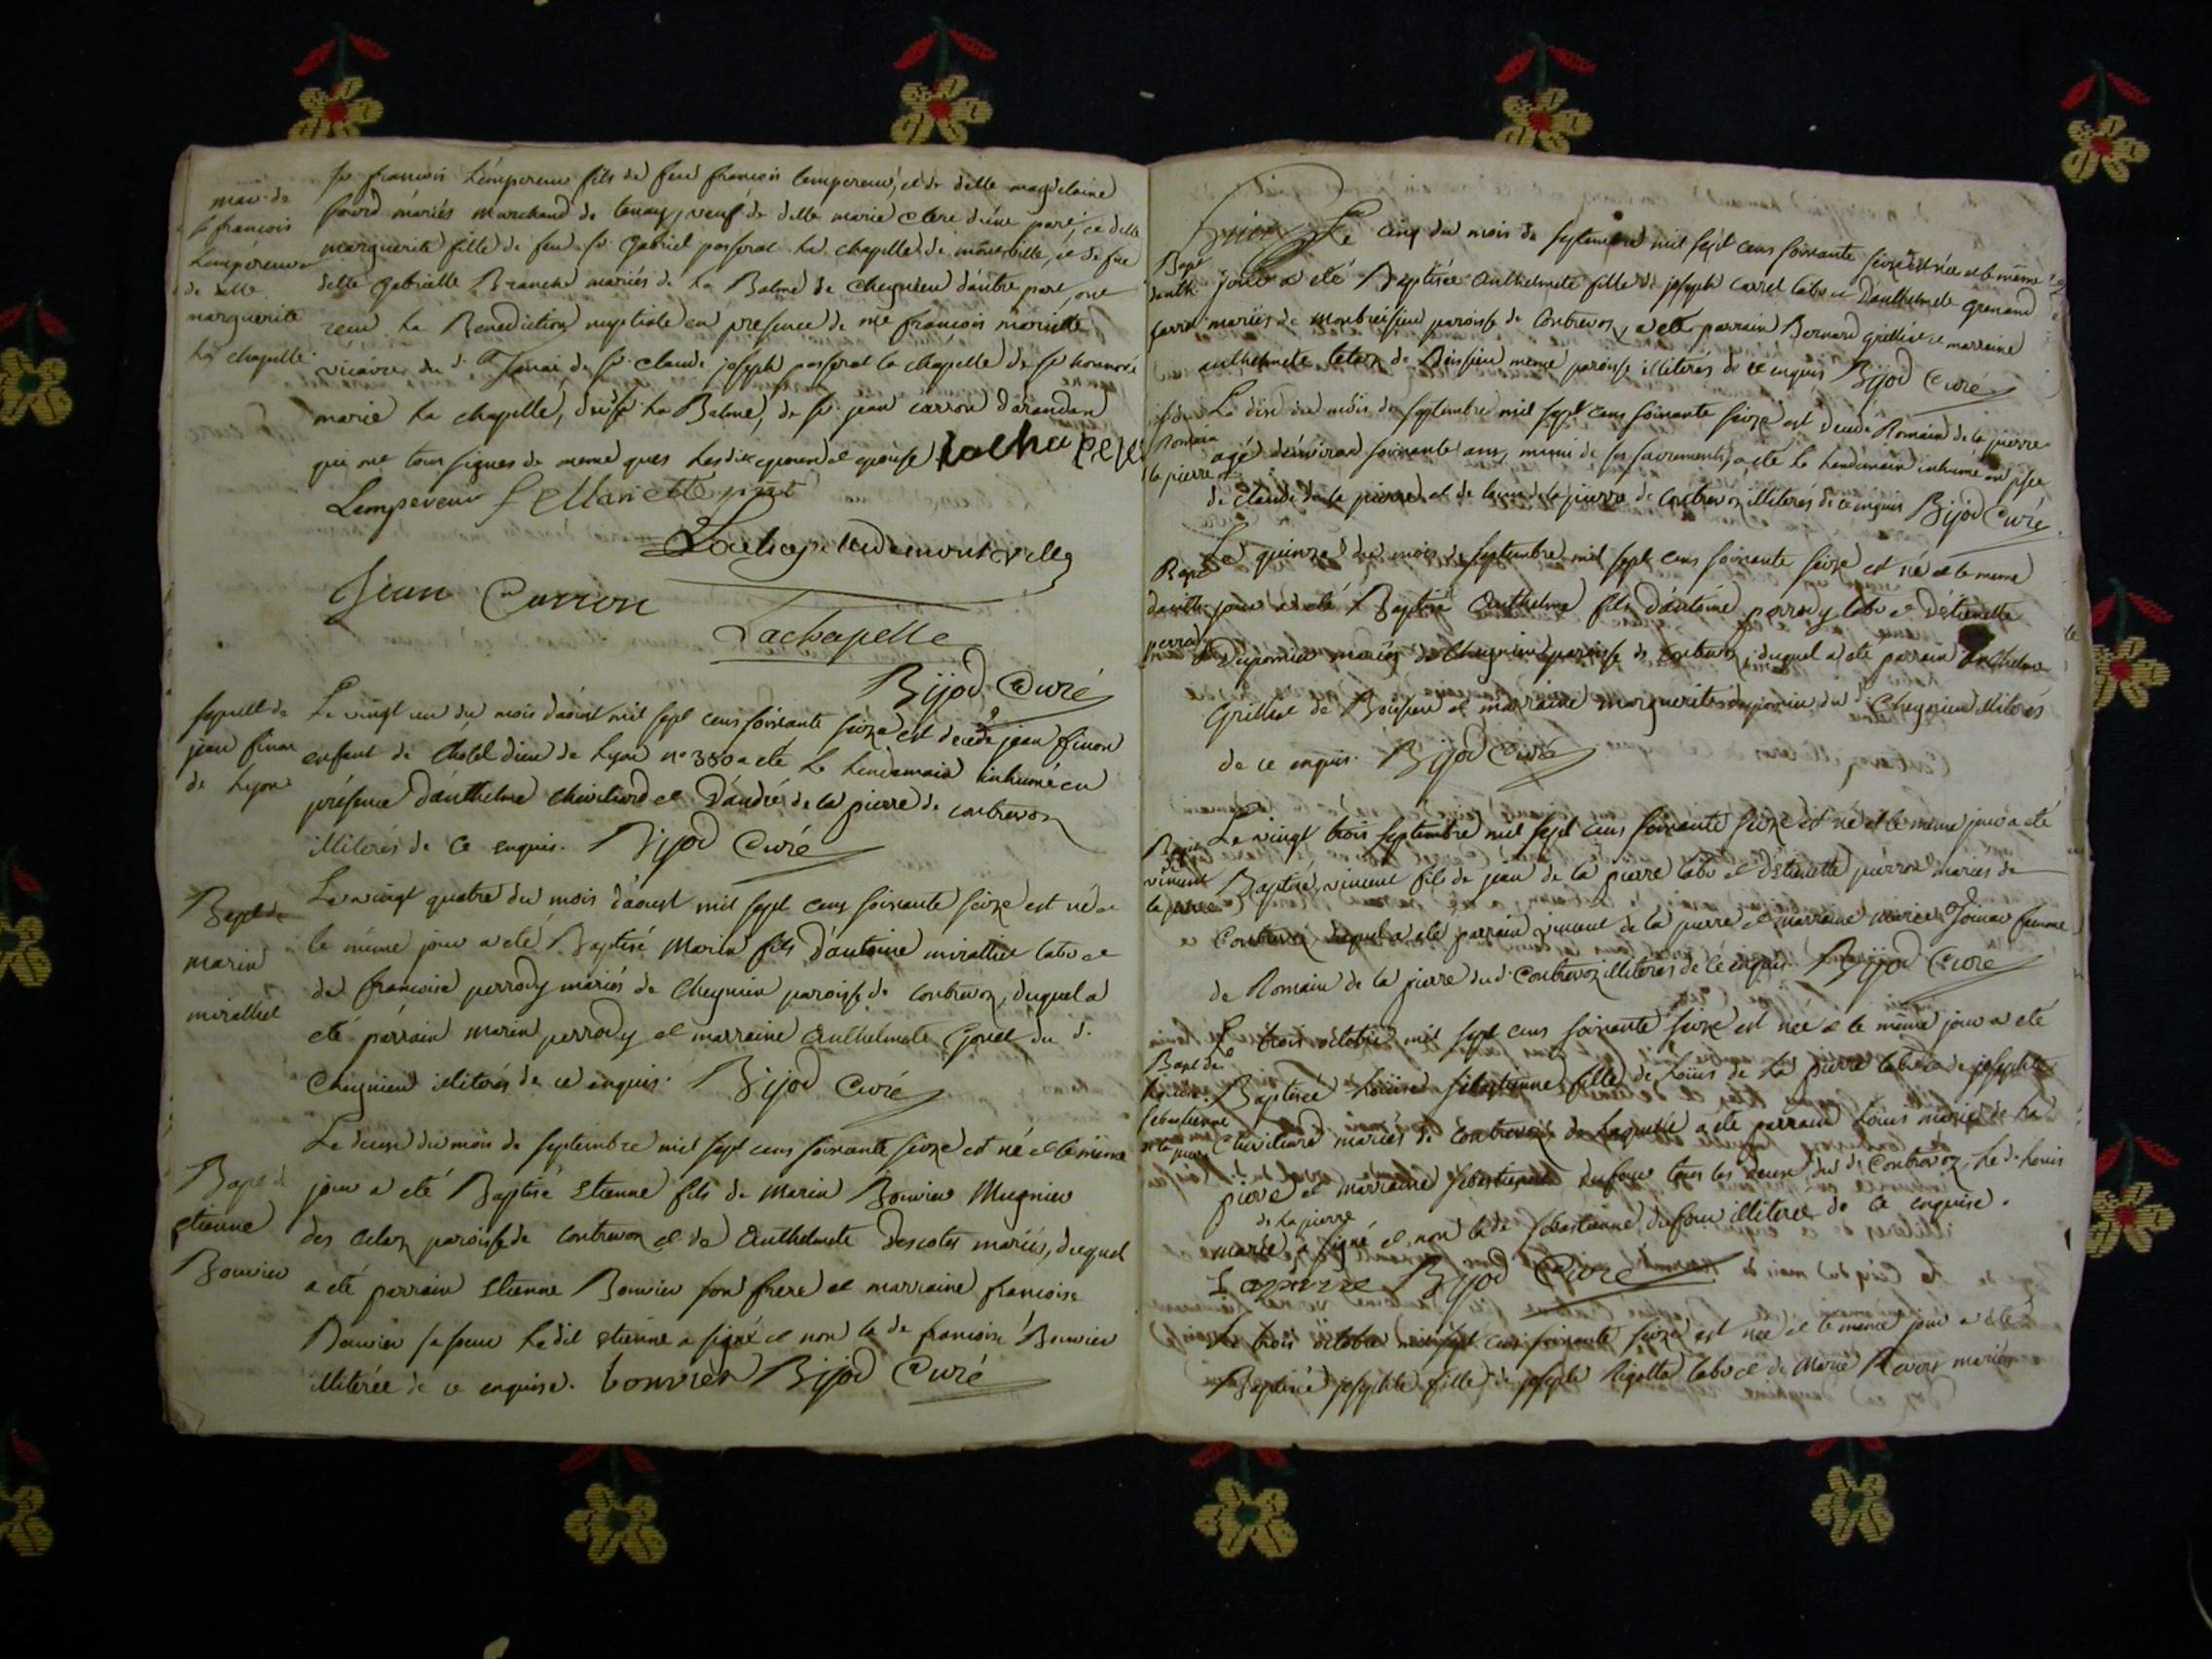 mar. de
sr francois
Lempereur
de delle
marguerite
La chapelle
sr francois Lempereur fils de feu francois Lempereur, et de delle magdelaine
mariés Marchand de tenay, veuf de delle marie Clere d'une part, et delle
marguerite fille de feu sr Gabriel passerat La chapelle de montville, et de feue
delle Gabrielle Branche mariés de La Balme de cheignieu d'autre part, ont
reçu La Benediction nuptiale en presence de me francois mariette
vicaire du de sr claude joseph passerat la chapelle de sr honnoré
marie La chapelle, de La Balme, de sr jean carron d'arandas
qui ont tous signés de meme que Lesdits epoux et epouse Lachapele
Lempereur f Mariette ptre
Lachapelledemontville
Jean Carron
Lachapelle
Bijod Curé
sepult de
jean finon
de Lyon
Le vingt un du mois d'aoust mil sept cens soixante seize est decedé jean finon
enfant de L'hotel dieu de Lyon no 380 a eté Le Lendemain inhumé en
présence d'anthelme chevilard et d'andré de la pierre de contrevoz
illiterés de ce enquis. Bijod Curé
Bapt de
marin
mirallet
Le vingt quatre du mois d'aoust mil sept cens soixante seize est né et
le même jour a eté Baptisé Marin fils d'antoine mirallet labr et
de francoise perrody mariés de Cheignieu paroisse de contrevoz, duquel a
eté parrain marin perrody et marraine Anthelmete Gonet du d.
Cheignieu illiterés de ce enquis. Bijod Curé
Bapt d
etienne
Bouvier
Le deux du mois de septembre mil sept cens soixante seize est né et le même
jour a eté Baptisé Etienne fils de Marin Bouvier Mugnier
des paroisse de contrevoz et de Anthelmete Descotes mariés, duquel
a eté parrain Etienne Bouvier son frere et marraine francoise
Bouvier sa soeur Ledit etienne a signé et non la de francoise Bouvier
illiterée de ce enquise. bouvier Bijod Curé
Bapt
d'anth.
carrel
Le cinq du mois de septembre mil sept cens soixante seize est née et le même
jour a eté Baptisée Anthelmete fille de joseph carrel labr et d'anthelmete Grenaud
mariés de Montbreisieu paroisse de Contrevoz, a eté parrain Bernard grilliet et marraine
anthelmete de Boissieu meme paroisse illiterés de ce enquis Bijod Curé
Romain
la pierre
Le dix du mois de septembre mil sept cens soixante seize est decedé Romain de la pierre
agé d'environ soixante ans, muni de ses sacremens, a eté Le Lendemain inhumé en psce
de Claude de la pierre et de de la pierre de contrevoz illiterés de ce enquis Bijod Curé
Bapt
d'anth.
perrody
Le quinze du mois de septembre mil sept cens soixante seize est né et le meme
jour a eté Baptisé Anthelme fils d'antoine perrody labr et d'etiennette
Dupomier mariés de Cheignieu paroisse de contrevoz, duquel a eté parrain Anthelme
Grilliet de Boissieu et marraine marguerite dupomier du d. Cheignieu illiterés
de ce enquis. Bijod Curé
Bapt
vincent
la pierre
Le vingt trois septembre mil sept cens soixante seize est né et le meme jour a eté
Baptisé vincent fils de jean de la pierre labr et d'etiennette mariés de
Contrevoz duquel a eté parrain vincent de la pierre et marraine marie Joinar femme
de Romain de la pierre du d. Contrevoz illiterés de ce enquis Bijod Curé
Bapt de
Louise
sebastienne
de la pierre
Le trois octobre mil sept cens soixante seize est née et le même jour a eté
Baptisée Louise sebastienne fille de Louis de La pierre labr et de josephte
Chevilard mariés de Contrevoz de Laquelle a eté parrain Louis marie de La
pierre et marraine sebastienne dufour tous les deux du d. Contrevoz, Le d. Louis
de La pierre
marie a signé et non la de sebastienne dufour illiterée de ce enquise.
Lapierre Bijod Curé
Le trois octobre mil sept cens soixante seize est née et le meme jour a eté
Baptisée josephte fille de joseph Rigollet labr et de Marie mariés